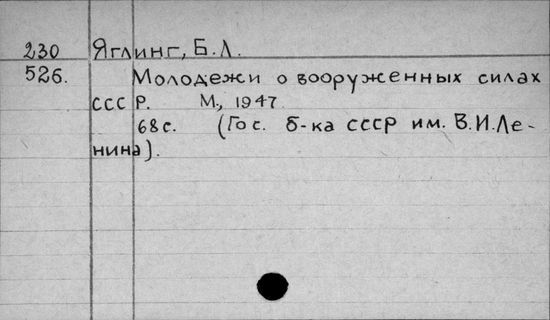 230 Яглинг, Б.Л.
526. Молодежи о вооруженных силах
СССР. М., 1947
68с. (Гос. б-ка СССР им. В.И.Ле-
нина).